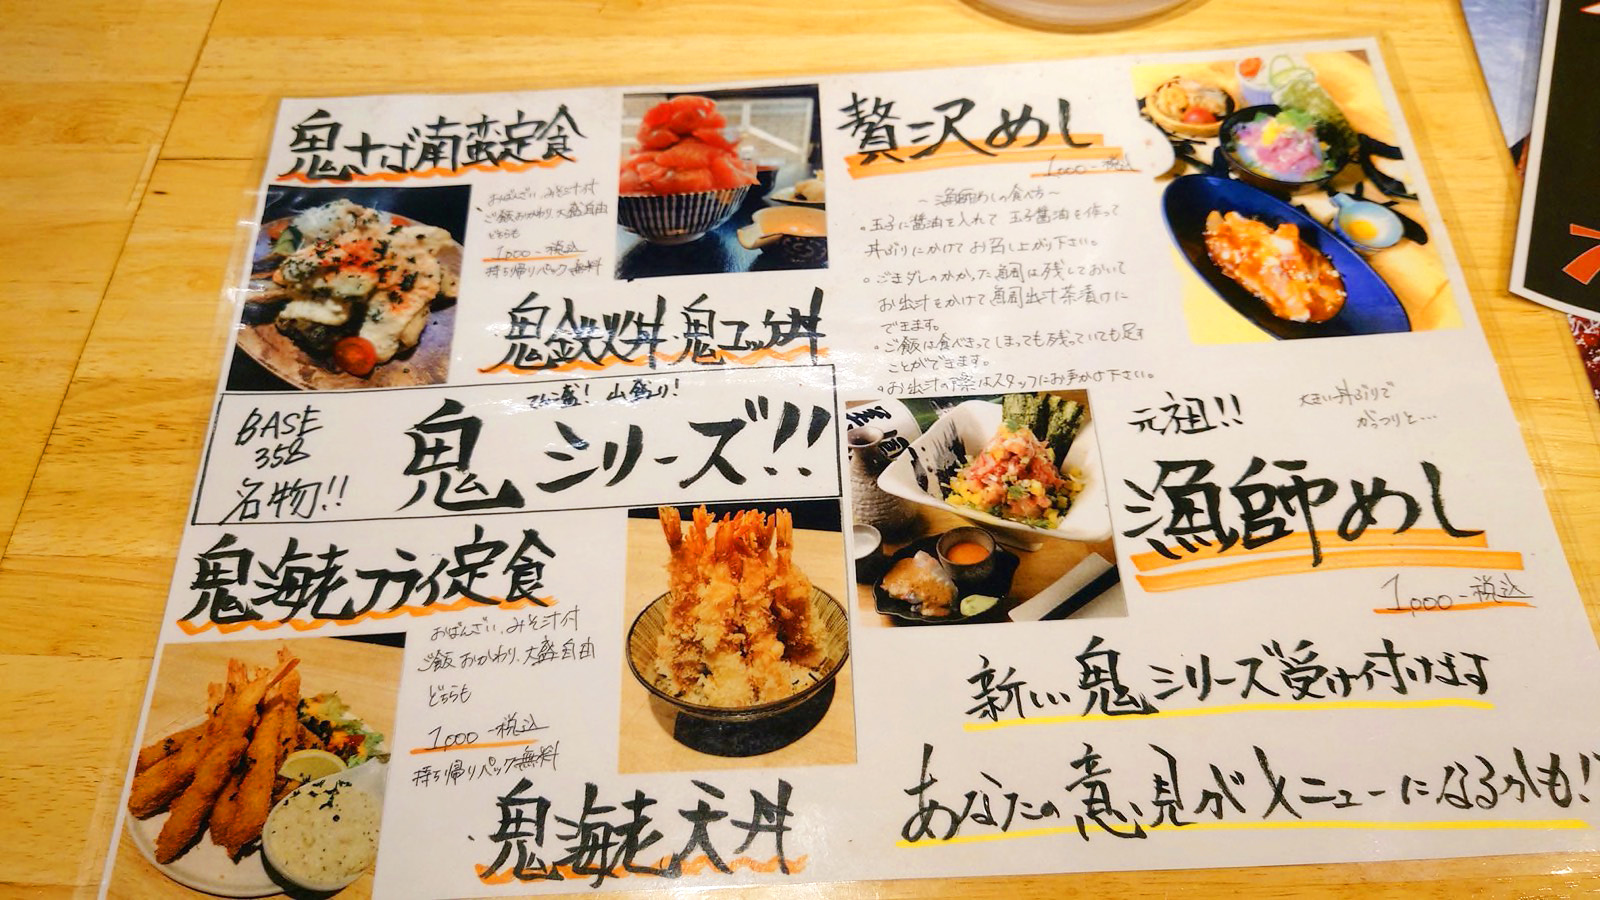 鬼ナゴ南蛮定食
おばんざい、みそ汁付
ご飯おかわり、大盛自由
どちらも
1,000-税込
持ち帰りパック無料
鬼鉄火丼 鬼ユッケ丼
てんこ盛! 山盛り!
BASE
358
名物!!
鬼シリーズ!!
鬼海老フライ定食
おばんざい、みそ汁付
ご飯おかわり、大盛自由
どちらも
1,000-税込
持ち帰りパック無料
鬼海老天丼
贅沢めし
1,000-税込
~漁師めしの食べ方~
・玉子に醤油を入れて 玉子醤油を作って
丼ぶりにかけてお召し上がり下さい。
・ごまダレのかかった魚周は残しておいて
お出汁をかけて魚周出汁茶漬けに
できます。
・ご飯は食べきってしまっても残っていても足す
ことができます。
・お出汁の際はスタッフにお声かけ下さい。
元祖!!
大きい丼ぶりで
がっつりと…
漁師めし
1,000-税込
新しい鬼シリーズ受け付けます
あなたの意見がメニューになるかも!